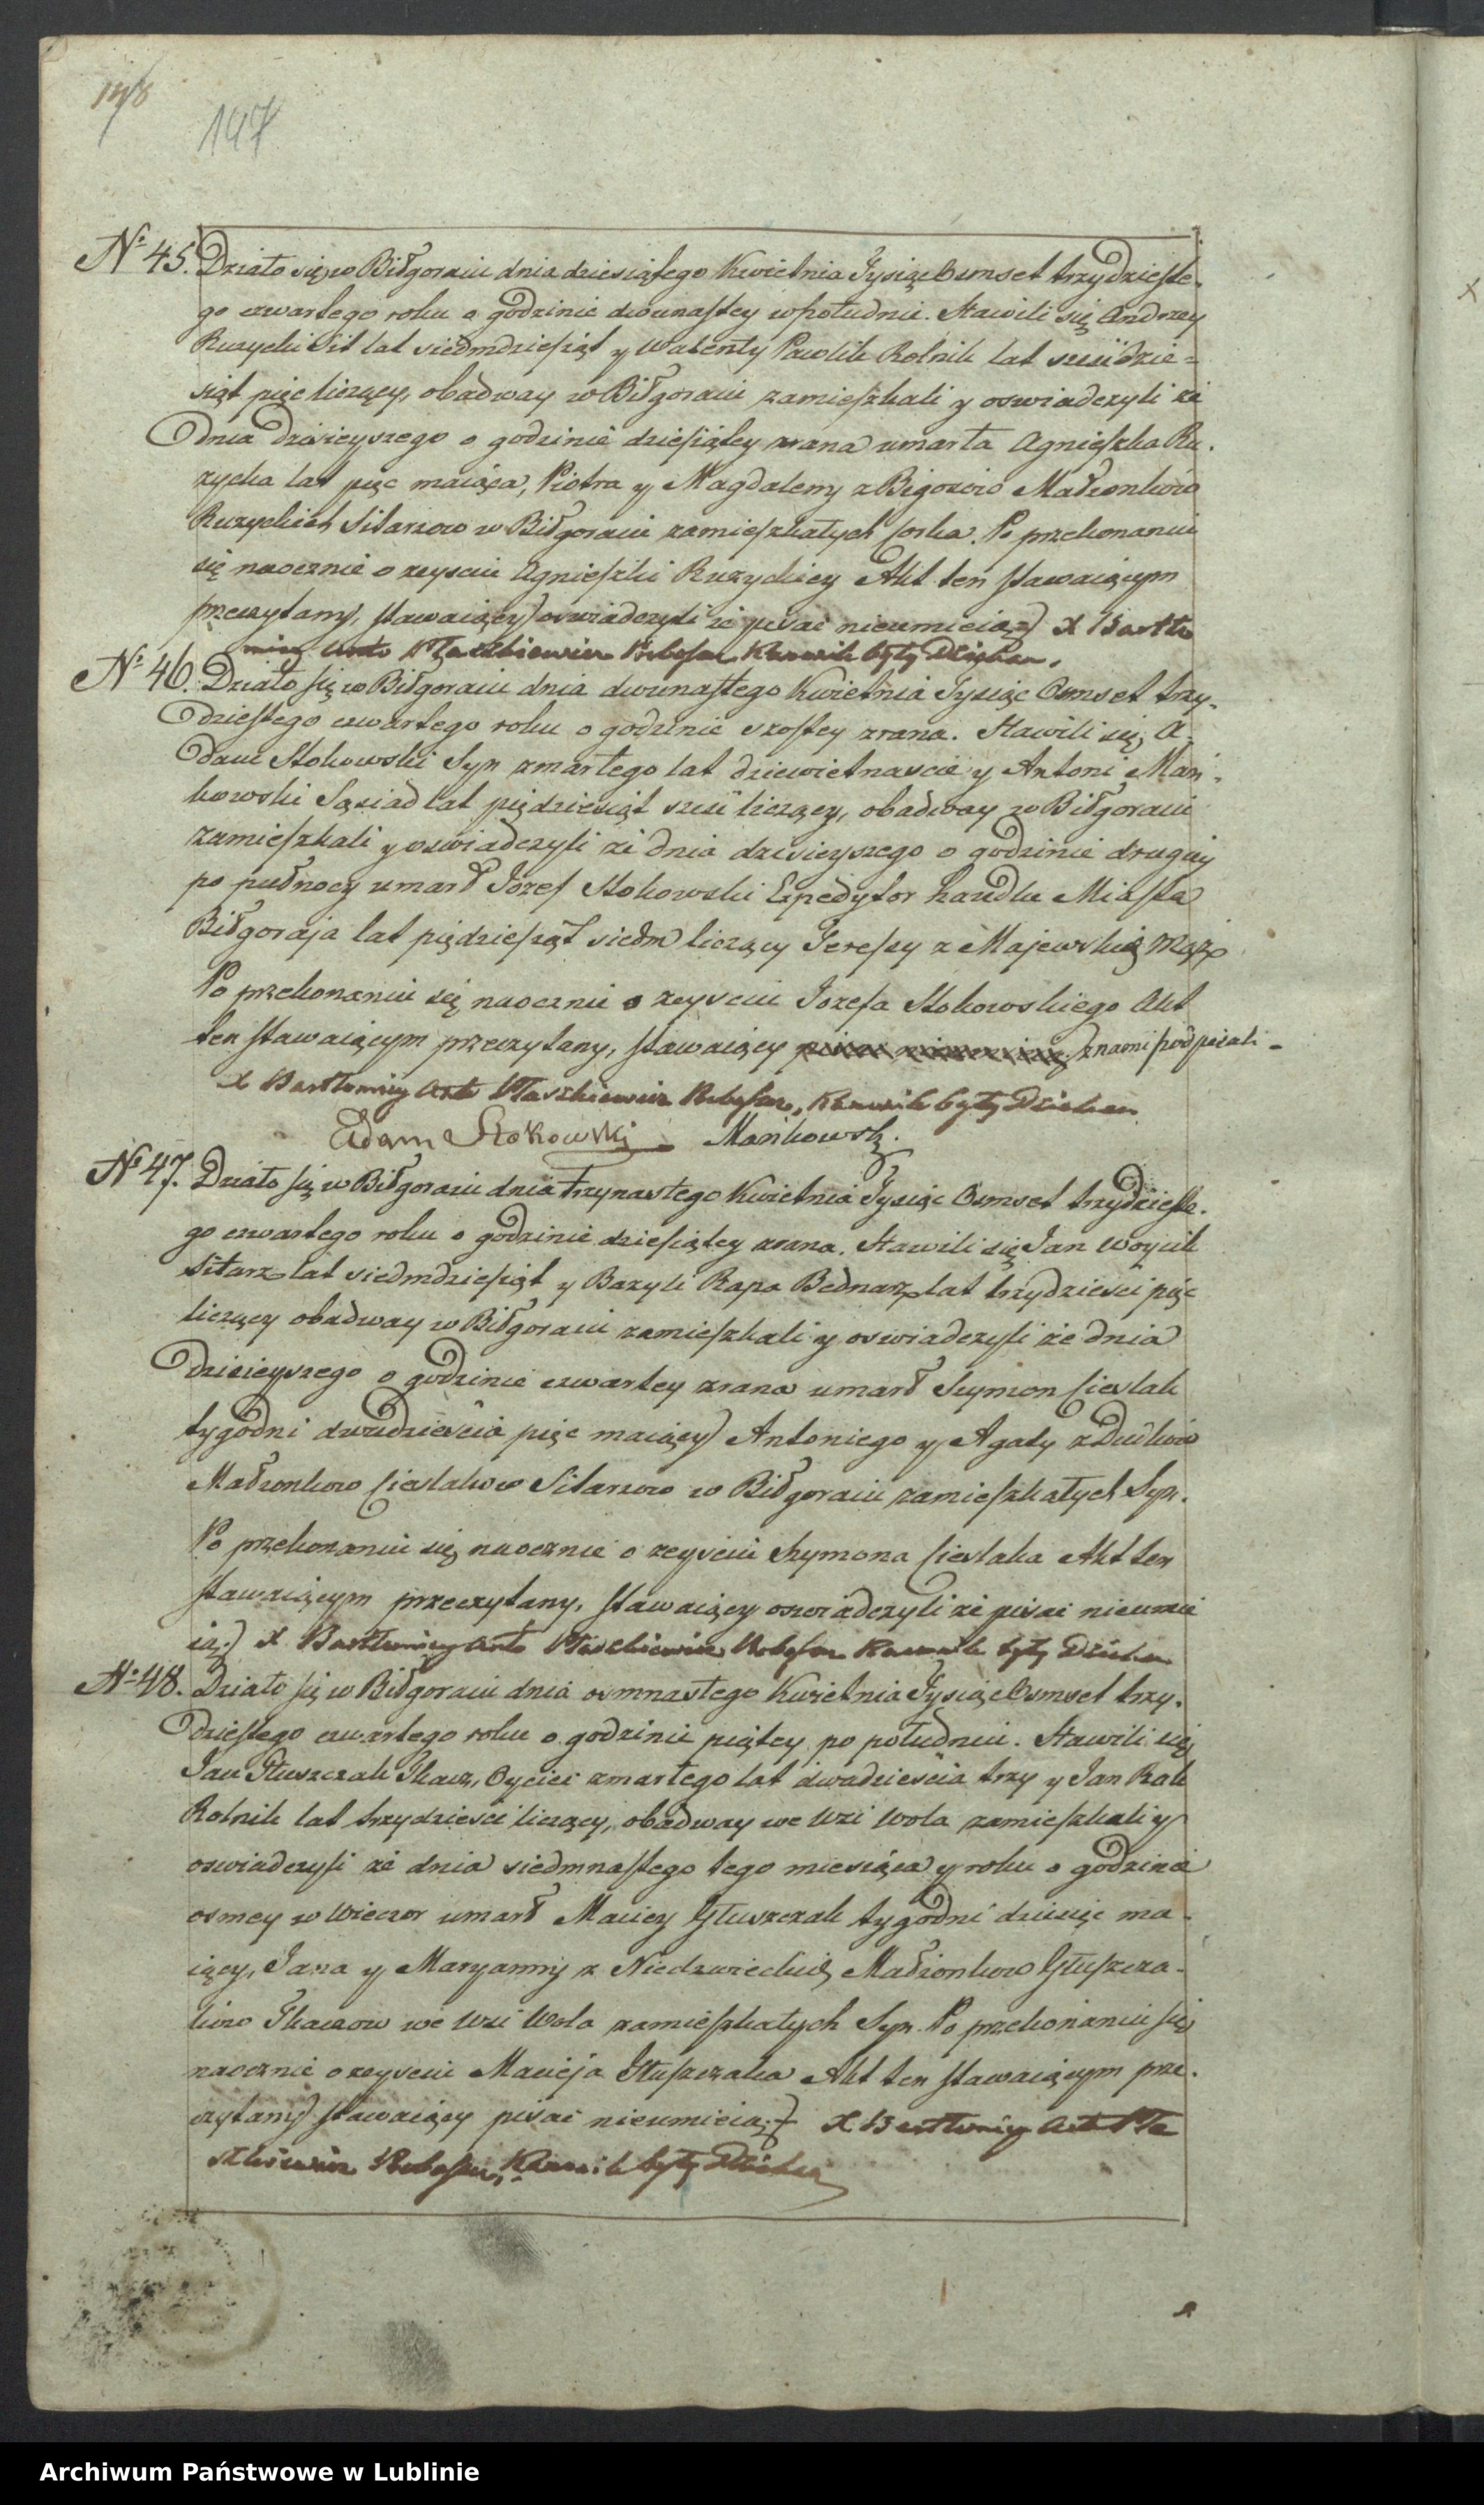 148
147
№ 45. Działo się w Biłgoraiu dnia dziesiątego Kwietnia Tysiąc Osmset trzydzieste-
go czwartego roku o godzinie dwunastey w południe. Stawili się Andrzey
Ruzycki lat siedmdziesiąt y Walenty Pawlik Rolnik lat sześćdzie=
siąt pięc liczący, obadway w Biłgoraiu zamieszkali y oswiadczyli że
dnia dzisieyszego o godzinie dziesiątey zrana umarła Agnieszka Ru-
zycka lat pięc maiąca, Piotra y Magdaleny z Małżonków
Ruzyckich Sitarzow w Biłgoraiu zamieszkałych Corka. Po przekonaniu
się naocznie o zeysciu Agnieszki Ruzyckiey Akt ten stawaiącym
przeczytany, stawaiący oswiadczyli że pisac nieumieią X Bartło
miey Anto Ptaszkiewicz Probosz Kanonik były Dziekan.
№ 46. Działo się w Biłgoraiu dnia dwunastego Kwietnia Tysiąc Osmset trzy-
dziestego czwartego roku o godzinie szostey zrana. Stawili się A-
dam Stokowski Syn zmarłego lat dziewietnascie y Antoni Man-
kowski Sąsiad lat piędziesiąt sześć liczący, obadway w Biłgoraiu
zamieszkali y oswiadczyli że dnia dzisieyszego o godzinie drugiey
po pułnocy umarł Jozef Stokowski Expedytor handlu Miasta
Biłgoraja lat piędziesiąt siedm liczący Teressy z Majewskich Mąż
Po przekonaniu się naocznie o zeysciu Jozefa Stokowskiego Akt
ten stawaiącym przeczytany, stawaiący z nami podpisali -
X Bartłomiey Anto Ptaszkiewicz Probosz, Kanonik były Dziekan
Adam Stokowski Mankowski.
№ 47. Działo się w Biłgoraiu dnia trzynastego Kwietnia Tysiąc Osmset trzydzieste-
go czwartego roku o godzinie dziesiątey zrana. Stawili się Jan Woycik
Sitarz lat siedmdziesiąt y Bazyli Rapa Bednarz lat trzydziesci pięc
liczący obadway w Biłgoraiu zamieszkali y oswiadczyli że dnia
dzisieyszego o godzinie czwartey zrana umarł Szymon Cieslak
tygodni dwadziescia pięc maiący Antoniego y Agaty z Dudkow
Małżonkow Cieslakow Sitarzow w Biłgoraiu zamieszkałych Syn.
Po przekonaniu się naocznie o zeysciu Szymona Cieslaka Akt ten
stawaiącym przeczytany, stawaiący oswiadczyli że pisac nieumie
ią X Bartłomiey Anto Ptaszkiewicz Probosz Kanonik były Dziekan
№ 48. Działo się w Biłgoraiu dnia osmnastego Kwietnia Tysiąc Osmset trzy-
dziestego czwartego roku o godzinie piątey po południu. Stawili się
Jan Głuszczak Tkacz, Oyciec zmarłego lat dwadziescia trzy y Jan Rak
Rolnik lat trzydziesci liczący, obadway we Wsi Wola zamieszkali y
oswiadczyli że dnia siedmnastego tego miesiąca y roku o godzinie
osmey w Wieczor umarł Maciey Głuszczak tygodni dziesięc ma-
iący, Jana y Maryanny z Niedzwieckich Małżonkow Głuszcza-
kow Tkaczow we Wsi Wola zamieszkałych Syn. Po przekonaniu się
naocznie o zeysciu Macieja Głuszczaka Akt ten stawaiącym prze-
czytany stawaiący pisac nieumieią X Bartłomiey Anto Pta
szkiewicz Probosz, Kanonik były Dziekan
Archiwum Państwowe w Lublinie